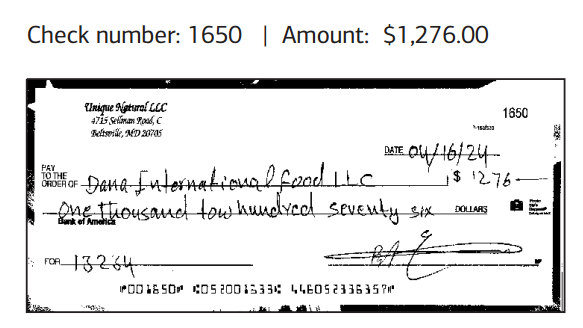 Check number: 1650 | Amount: $1,276.00
Unique Natural LLC
4715 Sellman Road, C
Beltsville, MD 20705
1650
DATE 04/16/24
PAY TO THE ORDER OF Dana International food LLC $ 1276
One thousand tow hundred seventy six DOLLARS
Bank of America
FOR 13264
⑈001650⑈ ⑆052001633⑆ 446052336357⑈